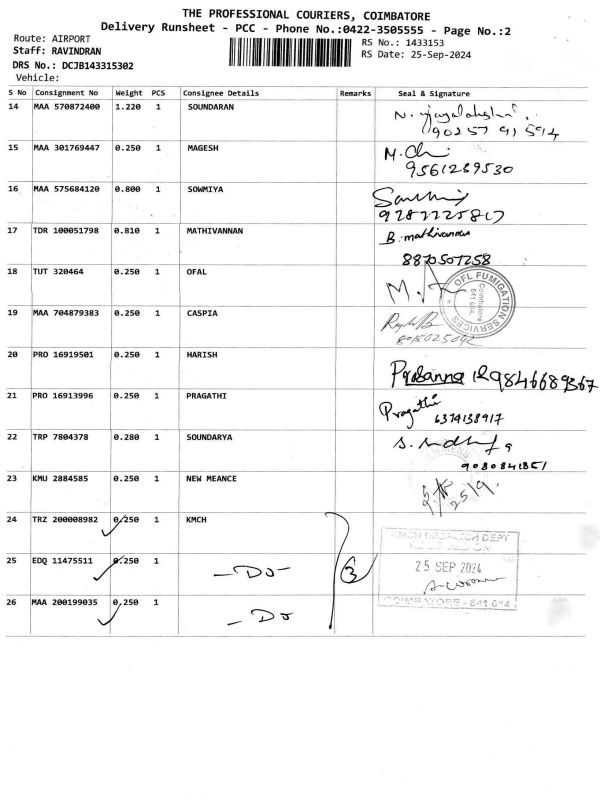 THE PROFESSIONAL COURIERS, COIMBATORE
Delivery Runsheet - PCC - Phone No.:0422-3505555 - Page No.:2
Route: AIRPORT
RS No.: 1433153
Staff: RAVINDRAN
RS Date: 25-Sep-2024
DRS No.: DCJB143315302
Vehicle:
S No Consignment No Weight PCS Consignee Details Remarks Seal & Signature
14 MAA 570872400 1.220 1 SOUNDARAN
15 MAA 301769447 0.250 1 MAGESH
9561289530
16 MAA 575684120 0.800 1 SOWMIYA
17 TDR 100051798 0.810 1 MATHIVANNAN B. mathivannan
8870507258
18 TUT 320464 0.250 1 OFAL
OFL FUMIGATION SERVICES
Coimbatore
641 014.
19 MAA 704879383 0.250 1 CASPIA
20 PRO 16919501 0.250 1 HARISH
Prasanna
21 PRO 16913996 0.250 1 PRAGATHI Pragathi
6374138917
22 TRP 7804378 0.280 1 SOUNDARYA
9080841851
23 KMU 2884585 0.250 1 NEW MEANCE
25/9
24 TRZ 200008982 0.250 1 KMCH
25 EDQ 11475511 0.250 1 -Do- 3
25 SEP 2024
26 MAA 200199035 0.250 1 - Do
COIMBATORE - 641 014.